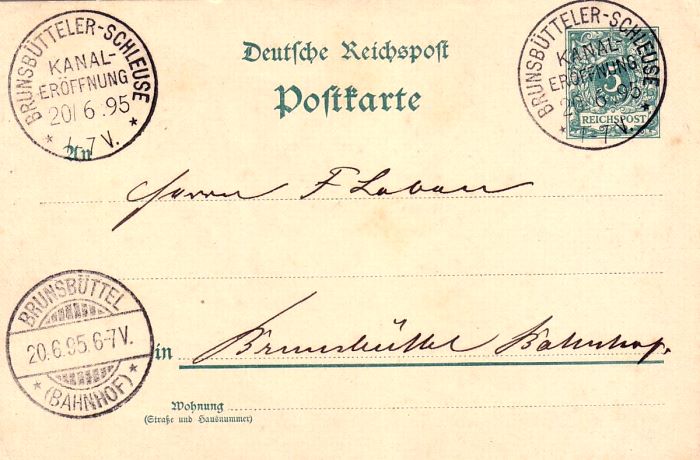 BRUNSBÜTTELER-SCHLEUSE
KANAL-
ERÖFFNUNG
20/6.95
* 7 V. *
Deutsche Reichspost
Postkarte
BRUNSBÜTTELER-SCHLEUSE
KANAL-
ERÖFFNUNG
20/6.95
* 7 V. *
5
REICHSPOST
An
Herrn F Laban
BRUNSBÜTTEL
20.6.95.6-7V.
* (BAHNHOF) *
in Brunsbüttel Bahnhof.
Wohnung
(Straße und Hausnummer)